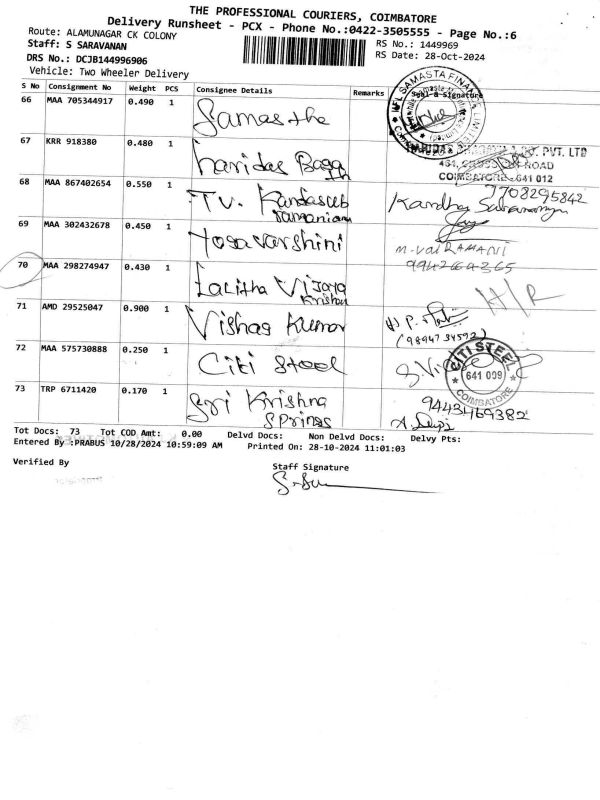 THE PROFESSIONAL COURIERS, COIMBATORE
Delivery Runsheet - PCX - Phone No.:0422-3505555 - Page No.:6
Route: ALAMUNAGAR CK COLONY
RS No.: 1449969
Staff: S SARAVANAN
RS Date: 28-Oct-2024
DRS No.: DCJB144996906
Vehicle: Two Wheeler Delivery
S No Consignment No Weight PCS Consignee Details Remarks Seal & Signature
66 MAA 705344917 0.490 1 Samasthe
67 KRR 918380 0.480 1 haridas Bagath
PVT. LTD
ROAD
COIMBATORE - 641 012
68 MAA 867402654 0.550 1 TV. Kandasub
ramaniam
7708295842
69 MAA 302432678 0.450 1 Yosavarshini
9942664365
70 MAA 298274947 0.430 1 Lalitha Vijaya
Krishan
H/R
71 AMD 29525047 0.900 1 Vishag Kumar
(9894734592)
72 MAA 575730888 0.250 1 Citi Steel
CITI STEEL
641 009
COIMBATORE
73 TRP 6711420 0.170 1 Sri Krishna
Springs
9443469382
Tot Docs: 73 Tot COD Amt: 0.00 Delvd Docs: Non Delvd Docs: Delvy Pts:
Entered By :PRABUS 10/28/2024 10:59:09 AM Printed On: 28-10-2024 11:01:03
Verified By
Staff Signature